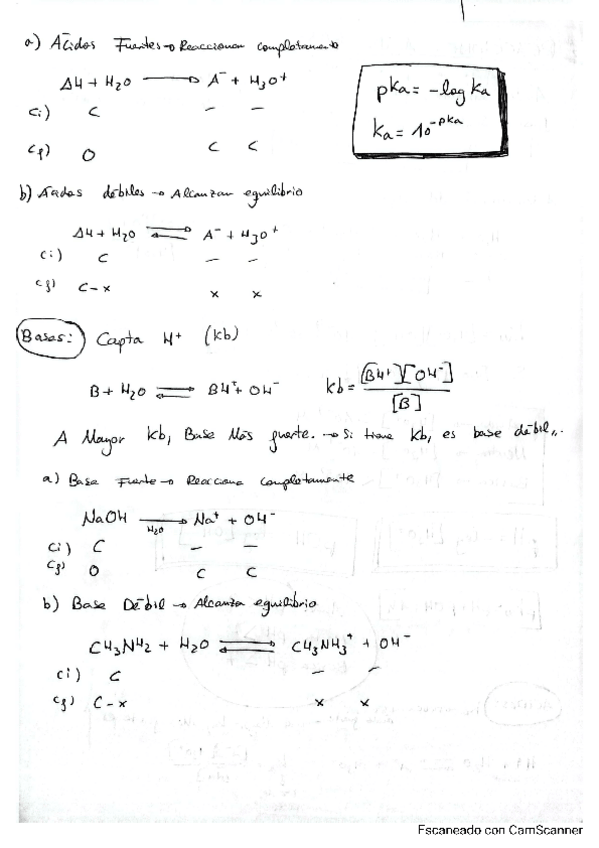 a) Ácidos Fuertes → Reaccionan completamente
AH + H2O → A⁻ + H3O⁺
Ci) C — —
Cf) O C C
pKa = -log Ka
Ka = 10^-pKa
b) Ácidos débiles → Alcanzan equilibrio
AH + H2O ⇌ A⁻ + H3O⁺
Ci) C — —
Cf) C-x x x
Bases: Capta H⁺ (Kb)
B + H2O ⇌ BH⁺ + OH⁻ Kb = [BH⁺][OH⁻] / [B]
A Mayor Kb, Base Más fuerte. → Si tiene Kb, es base débil,,.
a) Base Fuerte → Reacciona completamente
NaOH →H2O Na⁺ + OH⁻
Ci) C — —
Cf) O C C
b) Base Débil → Alcanza equilibrio
CH3NH2 + H2O ⇌ CH3NH3⁺ + OH⁻
Ci) C — —
Cf) C-x x x
Escaneado con CamScanner